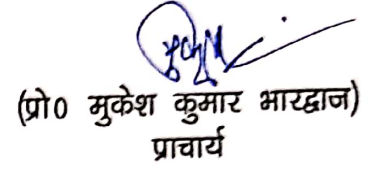 (प्रो0 मुकेश कुमार भारद्वाज)
प्राचार्य